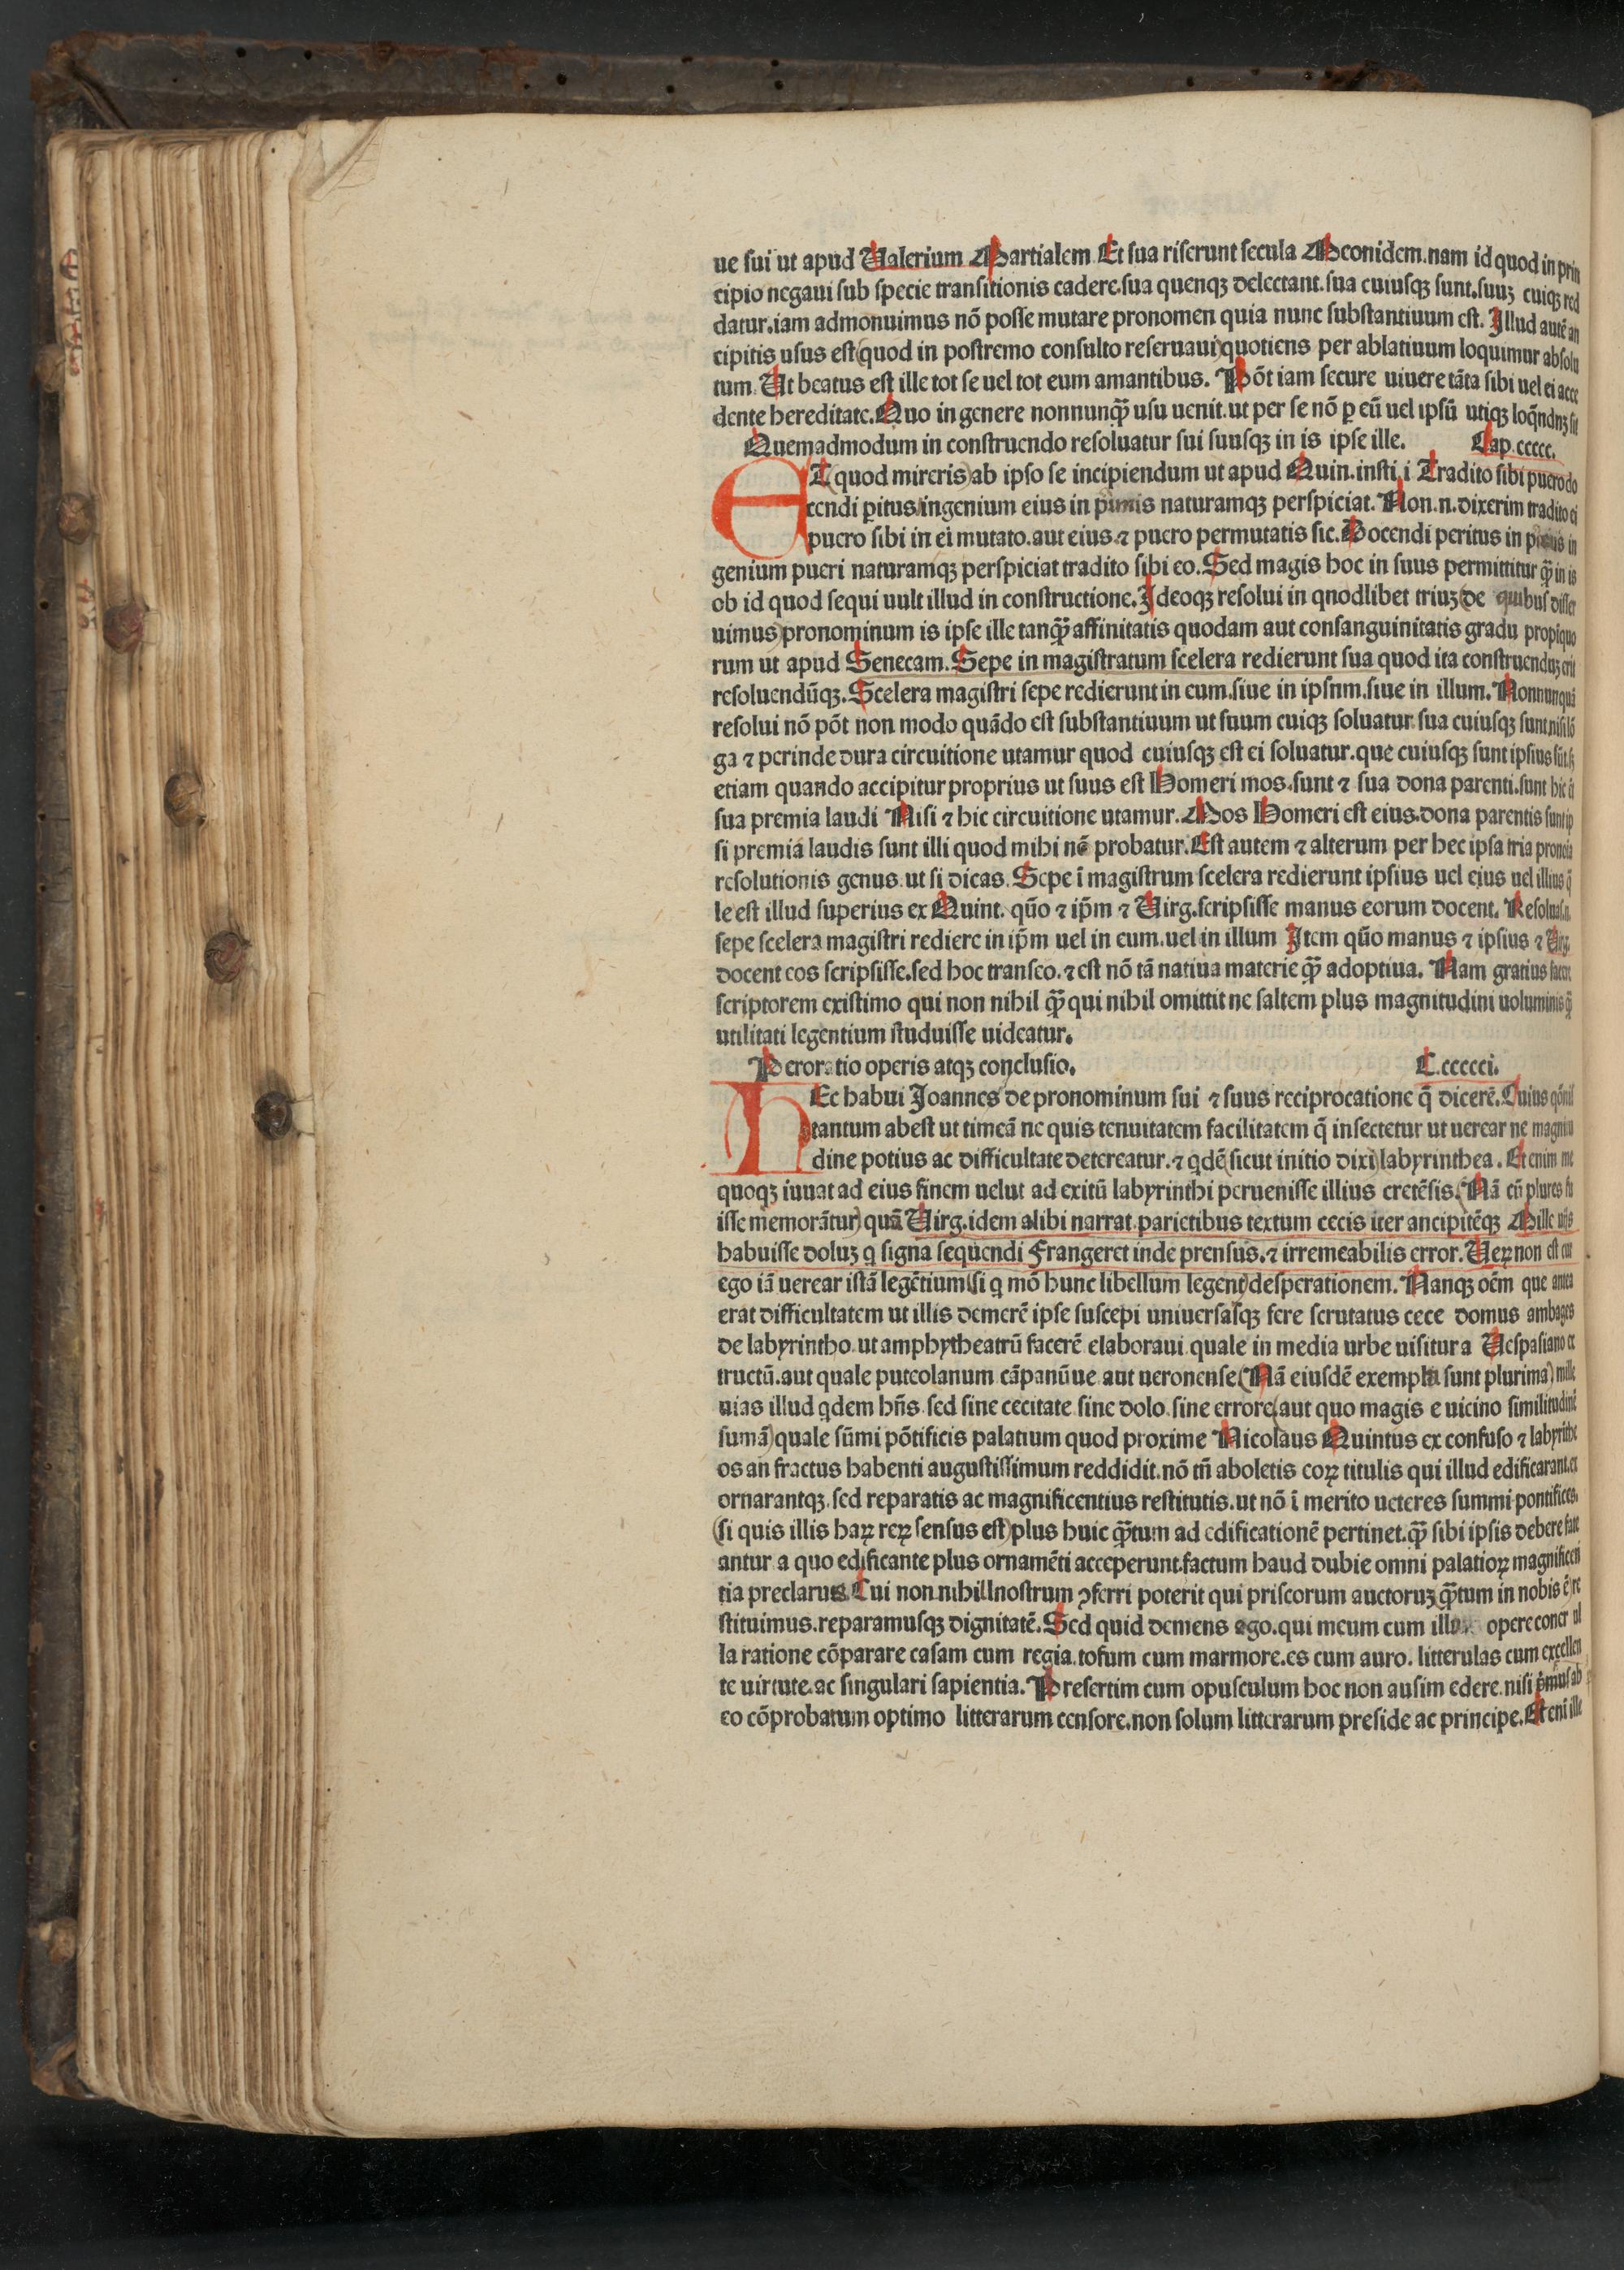 ue sui ut apud Ualerium Martialem Et sua riserunt secula Meonidem.nam id quod in prin
cipio negaui sub specie transitionis cadere.sua quenqꝫ delectant.sua cuiusqꝫ sunt.suuꝫ cuiqꝫ red
datur.iam admonuimus nō posse mutare pronomen quia nunc substantiuum est. Illud autē an
cipitis usus est(quod in postremo consulto reseruaui)quotiens per ablatiuum loquimur absolu
tum. Ut beatus est ille tot se uel tot eum amantibus. Pōt iam secure uiuere tāta sibi uel ei acce
dente hereditate.Quo in genere nonnunqꝫ̄ usu uenit.ut per se nō ꝑ eū uel ipsū utiqꝫ loq̄ndnꝫ sit
Quemadmodum in construendo resoluatur sui suusqꝫ in is ipse ille. Cap.ccccc.
ET(quod mireris)ab ipso se incipiendum ut apud Quin.insti.i Tradito sibi puero do
cendi ꝑitus/ingenium eius in pimis naturamqꝫ perspiciat. Non.n.dixerim tradito ei
puero sibi in ei mutato.aut eius.⁊ puero permutatis sic.Docendi peritus in in
genium pueri naturamqꝫ perspiciat tradito sibi eo.Sed magis hoc in suus permittitur qꝫ̄ in is
ob id quod sequi uult illud in constructione.Ideoqꝫ resolui in qnodlibet triuꝫ(de quibus disser
uimus)pronominum is ipse ille tanqꝫ̄ affinitatis quodam aut consanguinitatis gradu propiquo
rum ut apud Senecam.Sepe in magistratum scelera redierunt sua quod ita construenduꝫ erit
resoluendūqꝫ.Scelera magistri sepe redierunt in eum.siue in ipsnm.siue in illum.Nonnunquā
resolui nō pōt non modo quādo est substantiuum ut suum cuiqꝫ soluatur.sua cuiusqꝫ sunt.nisi lō
ga ⁊ perinde dura circuitione utamur quod cuiusqꝫ est ei soluatur.que cuiusqꝫ sunt ipsius
etiam quando accipitur proprius ut suus est Homeri mos.sunt ⁊ sua dona parenti.sunt hic
sua premia laudi Nisi ⁊ hic circuitione utamur.Mos Homeri est eius.dona parentis sunt ip
si premiā laudis sunt illi quod mihi nē probatur.Est autem ⁊ alterum per hec ipsa tria
resolutionis genus.ut si dicas.Sepe ī magistrum scelera redierunt ipsius uel eius uel illius
le est illud superius ex Quint. qūo ⁊ ip̄m ⁊ Uirg.scripsisse manus eorum docent.
sepe scelera magistri rediere in ip̄m uel in eum.uel in illum Item qūo manus ⁊ ipsius ⁊
docent eos scripsisse.sed hoc transeo.⁊ est nō tā natiua materie qꝫ̄ adoptiua. Nam gratius
scriptorem existimo qui non nihil qꝫ̄ qui nihil omittit ne saltem plus magnitudini uoluminis
utilitati legentium studuisse uideatur.
Peroratio operis atqꝫ conclusio. C.ccccci.
HEc habui Joannes de pronominum sui ⁊ suus reciprocatione q̄ dicerē.Cuius
tantum abest ut timeā ne quis tenuitatem facilitatem q̄ insectetur ut uerear ne magnitu
dine potius ac difficultate detereatur.⁊ qdē(sicut initio dixi)labyrinthea.Et enim me
quoqꝫ iuuat ad eius finem uelut ad exitū labyrinthi peruenisse illius cretēsis.(Nā eū plures fu
isse memorātur)quā Uirg.idem alibi narrat.parietibus textum cecis iter ancipitēqꝫ Mille uijs
habuisse doluꝫ q signa sequendi Frangeret inde prensus.⁊ irremeabilis error.Ueꝝ non est cur
ego iā uerear istā legētium(si q mō hunc libellum legent)desperationem. Nanqꝫ oēm que antea
erat difficultatem ut illis demerē ipse suscepi uniuersasqꝫ fere scrutatus cece domus ambages
de labyrintho.ut amphytheatrū facerē elaboraui quale in media urbe uisitura Uespasiano ex
tructū.aut quale puteolanum cāpanūue aut ueronense(Nā eiusdē exempla sunt plurima)mille
uias illud qdem hn̄s sed sine cecitate sine dolo.sine errore(aut quo magis e uicino similitudinē
sumā)quale sūmi pōtificis palatium quod proxime Nicolaus Quintus ex confuso ⁊ labyrithe
os an fractus habenti augustissimum reddidit.nō tn̄ aboletis eoꝝ titulis qui illud edificarant.et
ornarantqꝫ.sed reparatis ac magnificentius restitutis.ut nō ī merito ueteres summi pontifices.
(si quis illis haꝝ reꝝ sensus est)plus huic qꝫ̄tum ad edificationē pertinet.qꝫ̄ sibi ipsis debere fate
antur a quo edificante plus ornamēti acceperunt.factum haud dubie omni palatioꝝ magnificen
tia preclarus.Cui non nihil nostrum ꝯferri poterit qui priscorum auctoruꝫ qꝫ̄tum in nobis ē re
stituimus.reparamusqꝫ dignitatē.Sed quid demens ego.qui meum cum opere coner ul
la ratione cōparare casam cum regia.tofum cum marmore.es cum auro. litterulas cum excellen
te uirtute.ac singulari sapientia.Presertim cum opusculum hoc non ausim edere.nisi p̄mus ab
eo cōprobatum optimo litterarum censore.non solum litterarum preside ac principe.Et enī ille